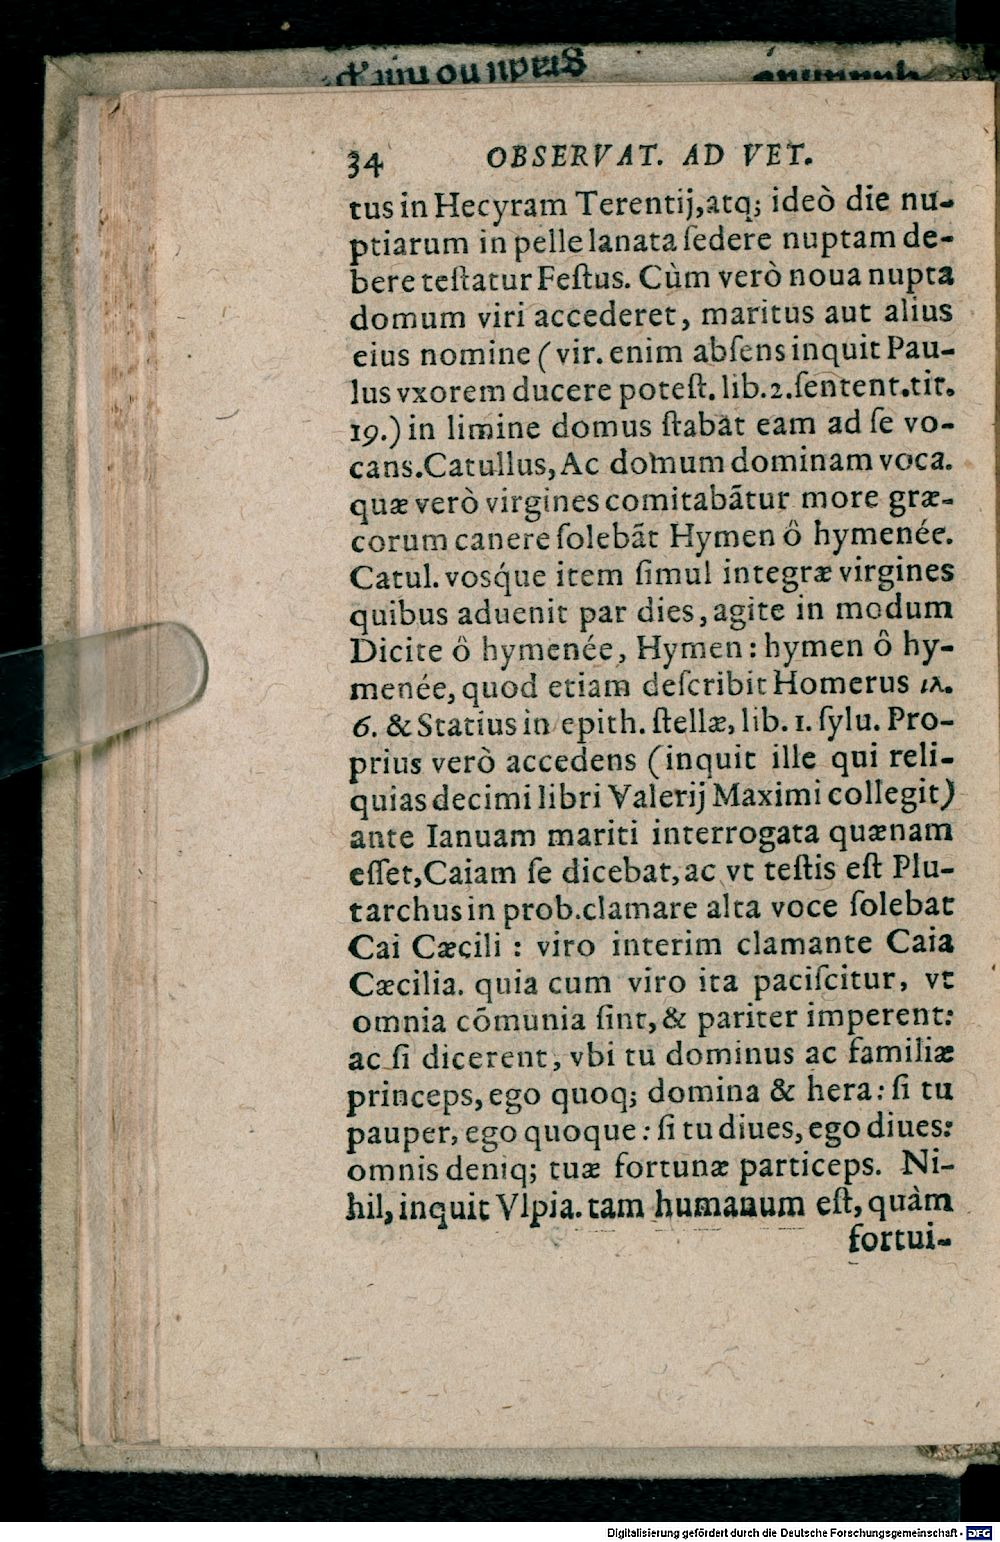 34 OBSERVAT. AD VET.
tus in Hecyram Terentij, atq; ideò die nu-
ptiarum in pelle lanata ſedere nuptam de-
bere teſtatur Feſtus. Cùm verò noua nupta
domum viri accederet, maritus aut alius
eius nomine (vir. enim abſens inquit Pau-
lus vxorem ducere poteſt. lib. 2. ſentent. tit.
19.) in limine domus ſtabat eam ad ſe vo-
cans. Catullus, Ac domum dominam voca.
quæ verò virgines comitabãtur more græ-
corum canere ſolebãt Hymen ô hymenée.
Catul. vosq́ue item ſimul integræ virgines
quibus aduenit par dies, agite in modum
Dicite ô hymenée, Hymen: hymen ô hy-
menée, quod etiam deſcribit Homerus ιλ.
6. & Statius in epith. ſtellæ, lib. 1. ſylu. Pro-
prius verò accedens (inquit ille qui reli-
quias decimi libri Valerij Maximi collegit)
ante Ianuam mariti interrogata quænam
eſſet, Caiam ſe dicebat, ac vt teſtis eſt Plu-
tarchus in prob. clamare alta voce ſolebat
Cai Cæcili : viro interim clamante Caia
Cæcilia. quia cum viro ita paciſcitur, vt
omnia cõmunia ſint, & pariter imperent:
ac ſi dicerent, vbi tu dominus ac familiæ
princeps, ego quoq; domina & hera: ſi tu
pauper, ego quoque: ſi tu diues, ego diues:
omnis deniq; tuæ fortunæ particeps. Ni-
hil, inquit Vlpia. tam humanum eſt, quàm
fortui-
Digitalisierung gefördert durch die Deutsche Forschungsgemeinschaft - DFG